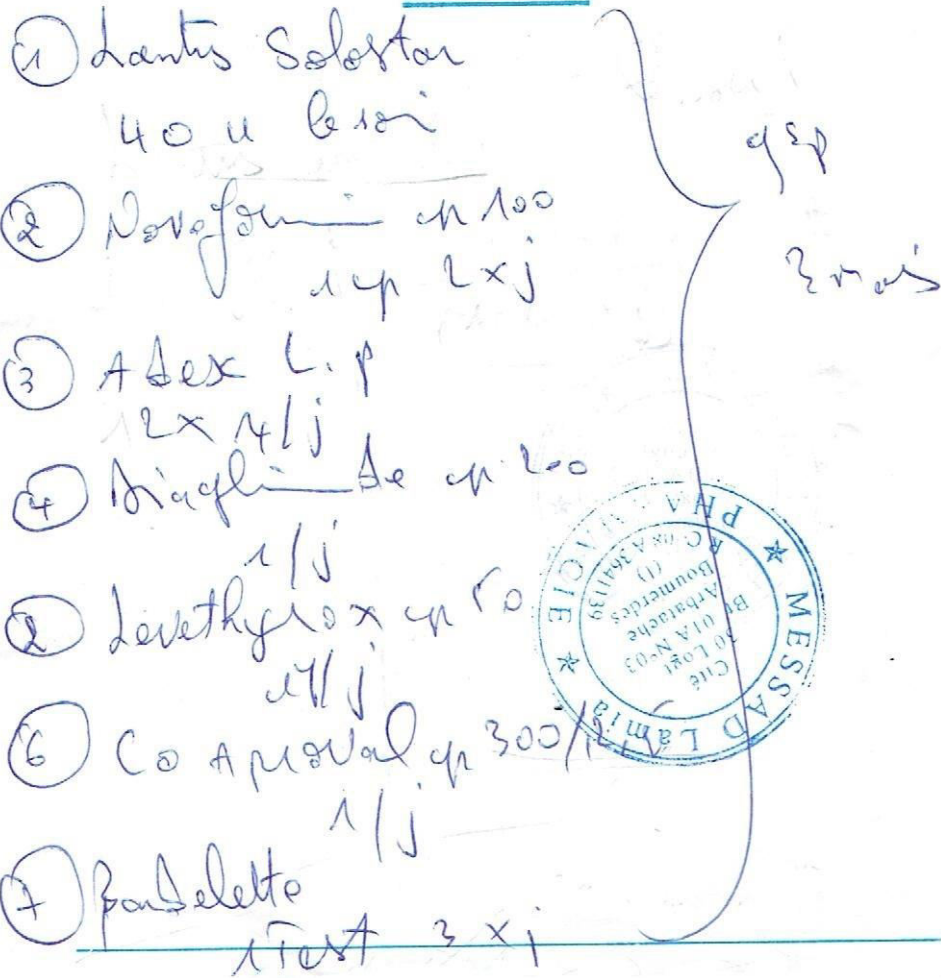 ① Lantus Solostar
40 u le soir
② Novoform cp 100
1 cp 2 x j
③ Adex L.p
/j
④ Diagli de cp 200
1/j
Levothyrox cp 50
1/j
⑥ Co Aproval cp 300/12,5
1/j
⑦ Bandelette
1 Test 3 x j
qsp
3 mois
★ MESSAD Lamia ★ PHARMACIE
Cité
50 Logt
01 A N°03
Arbatache
Boumerdes
(1)